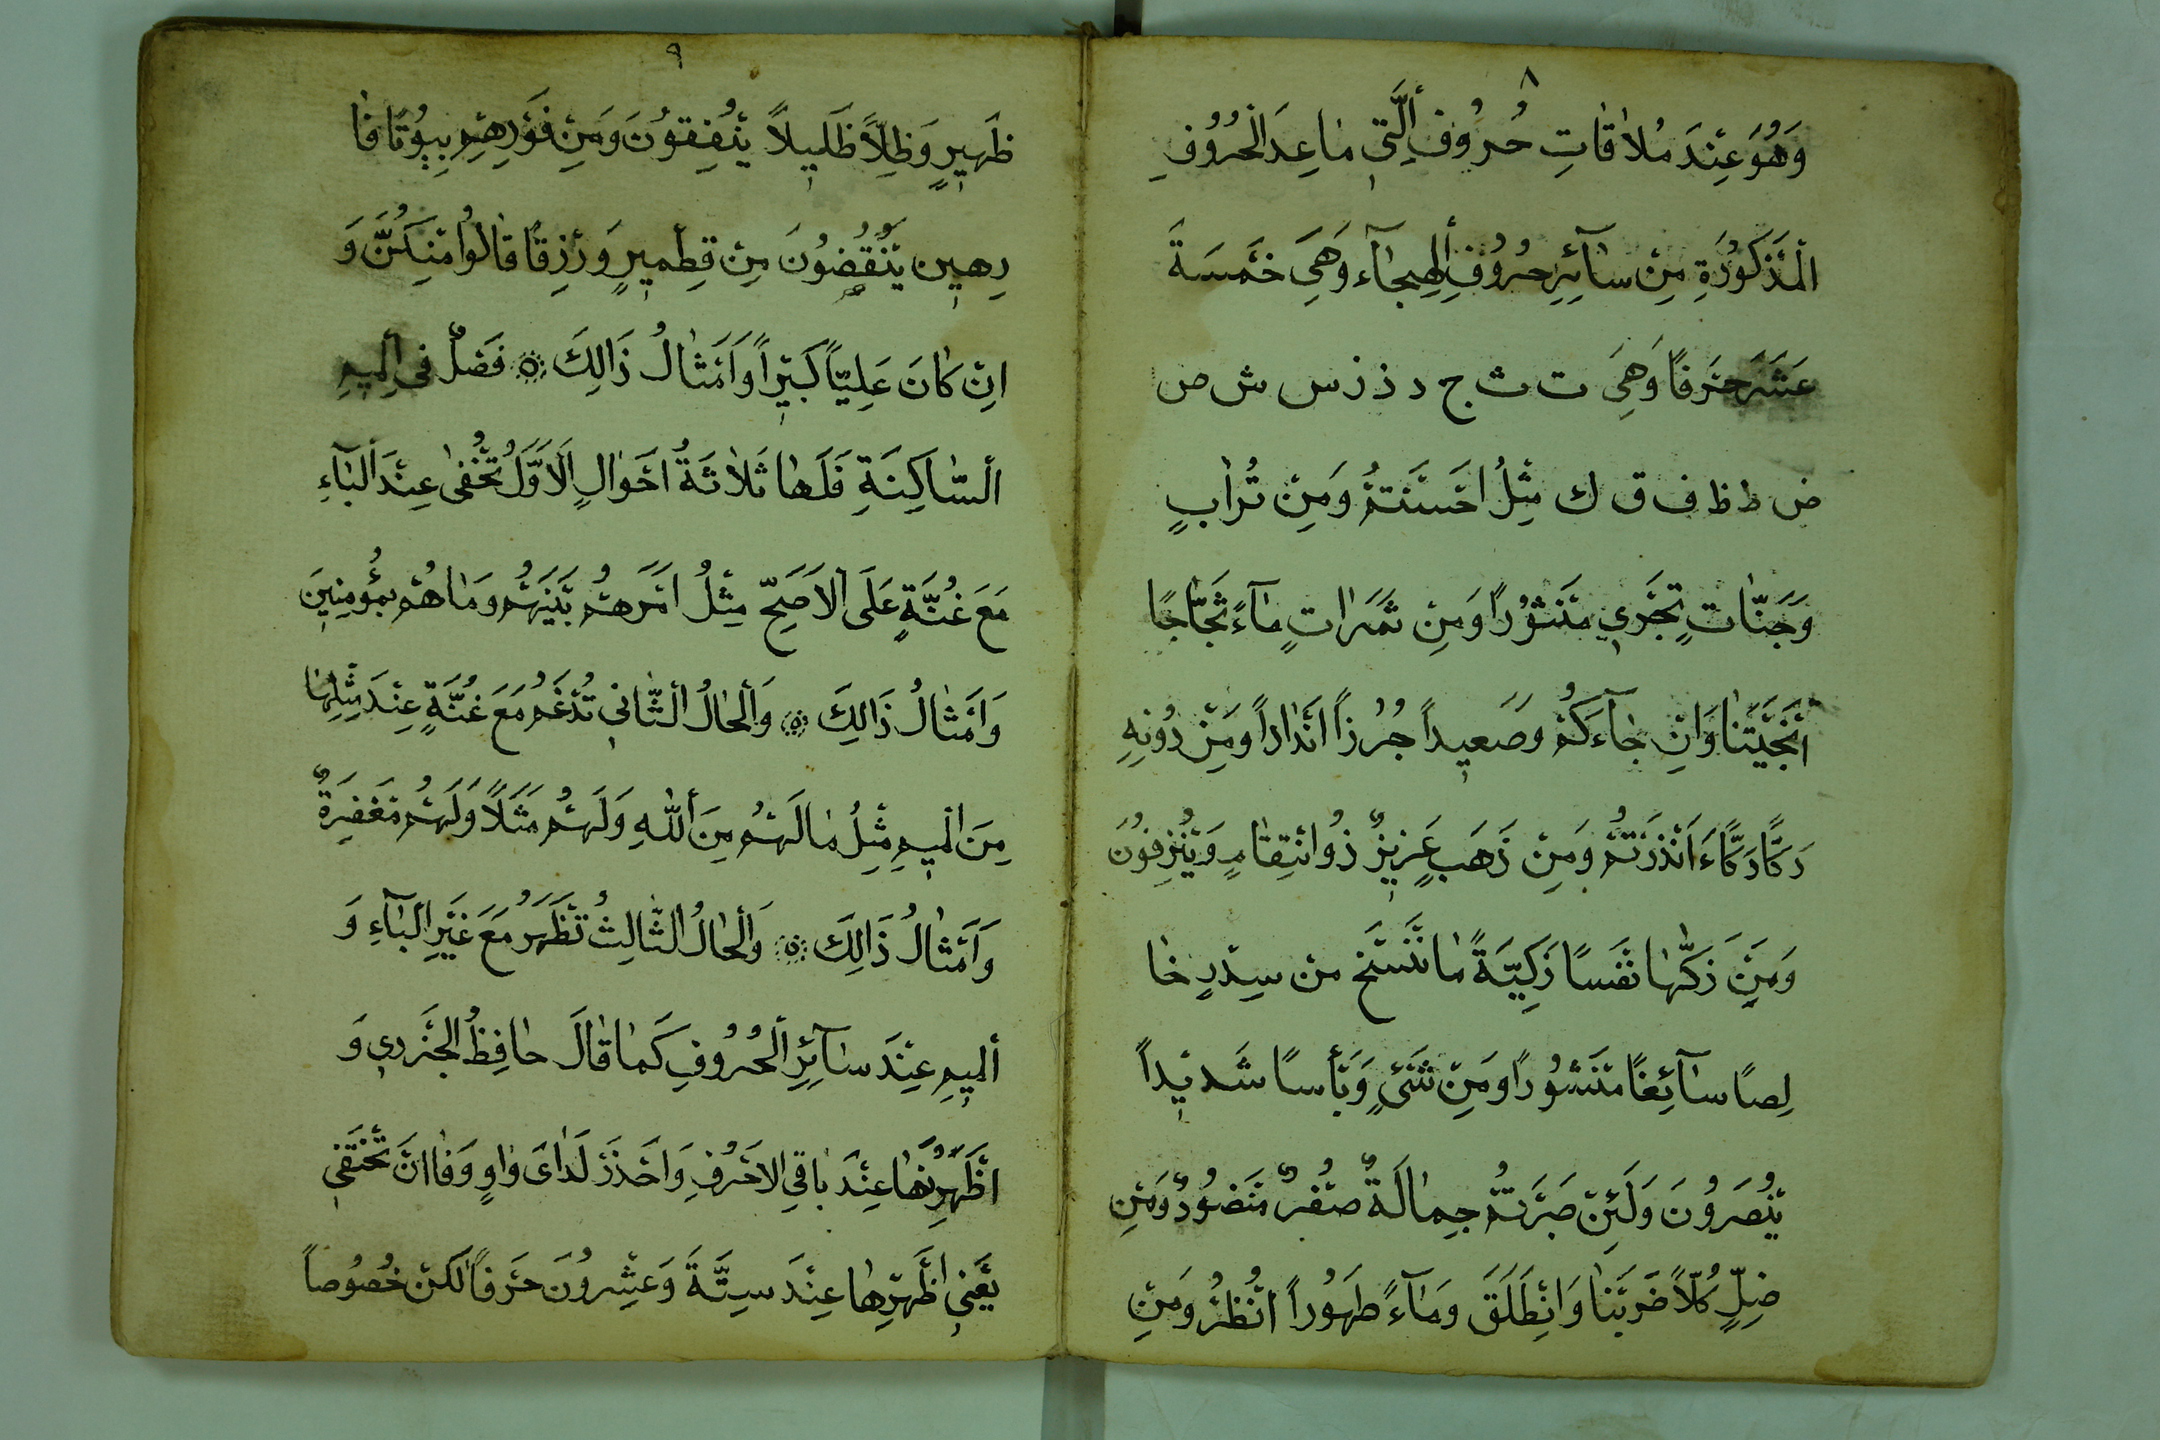 ٨
وَهُوَ عِنْدَ مُلَاقَاتِ حُرُوفِ الَّتِي مَا عِدَ الْحُرُوفِ
الْمَذْكُورَةِ مِنْ سَآئِرِ حُرُوفِ الْهِجَآءِ وَهِيَ خَمْسَةَ
عَشَرَ حَرْفًا وَهِيَ ت ث ج د ذ ز س ش ص
ض ط ظ ف ق ك مِثْلُ اَحْسَنْتُمْ وَمِنْ تُرَابٍ
وَجَنَّاتٍ تَجْرِي مَنْثُورًا وَمِنْ ثَمَرَاتٍ مَآءً ثَجَّاجًا
أَنْجَيْتَنَا وَاِنْ جَآءَكُمْ وَصَعِيداً جُرُزاً اَنْدَاداً وَمِنْ دُونِهِ
دَكًّا دَكًّا ءَاَنْذَرْتَهُمْ وَمِنْ ذَهَبٍ عَزِيزٌ ذُو انْتِقَامٍ وَيُنْزِفُونَ
وَمَنْ زَكّٰيهَا نَفْسًا زَكِيَّةً مَا نَنْسَخْ مِنْ سِدْرٍ خَا
لِصًا سَآئِغًا مَنْشُورًا وَمِنْ شَيْءٍ وَبَأْسًا شَدِيْداً
يُنْصَرُونَ وَلَئِنْ صَبَرْتُمْ جِمَالَةٌ صُفْرٌ مَنْضُودٌ وَمِنْ
ضِلٍّ كُلّاً ضَرَبْنَا وَانْطَلَقَ وَمَآءً طَهُوراً اُنْظُرْ وَمِنْ
٩
ظَهِيرٍ وَظِلّاً ظَلِيلاً يُنْفِقُونَ وَمِنْ فَوْرِهِمْ بِيُوتًا فَا
رِهِينَ يَنْقُضُونَ مِنْ قِطْمِيرٍ وَرِزْقًا قَالُوا مِنْكُنَّ وَ
اِنْ كَانَ عَلِيّاً كَبِيْراً وَاَمْثَالُ ذَالِكَ ۞ فَصْلٌ فِي الْمِيمِ
السَّاكِنَةِ فَلَهَا ثَلَاثَةُ اَحْوَالٍ اَلْاَوَّلُ تُخْفٰى عِنْدَ الْبَآءِ
مَعَ غُنَّةٍ عَلَى الْاَصَحِّ مِثْلُ اَمْرَهُمْ بَيْنَهُمْ وَمَا هُمْ بِمُؤْمِنِينَ
وَاَمْثَالُ ذَالِكَ ۞ وَالْحَالُ الثَّانِي تُدْغَمُ مَعَ غُنَّةٍ عِنْدَ مِثْلِهَا
مِنَ الْمِيمِ مِثْلُ مَا لَهُمْ مِنَ اللّٰهِ وَلَهُمْ مَثَلًا وَلَهُمْ مَغْفِرَةٌ
وَاَمْثَالُ ذَالِكَ ۞ وَالْحَالُ الثَّالِثُ تُظْهَرُ مَعَ غَيْرِ الْبَآءِ وَ
الْمِيمِ عِنْدَ سَآئِرِ الْحُرُوفِ كَمَا قَالَ حَافِظُ الْجَزَرِي وَ
اَظْهِرَنْهَا عِنْدَ بَاقِي الْاَحْرُفِ وَاحْذَرْ لَدٰى وَاوٍ وَفَا اَنْ تَخْتَفِي
يَعْنِي اَظْهِرْهَا عِنْدَ سِتَّةَ وَعِشْرُونَ حَرْفًا لَكِنْ خُصُوصاً